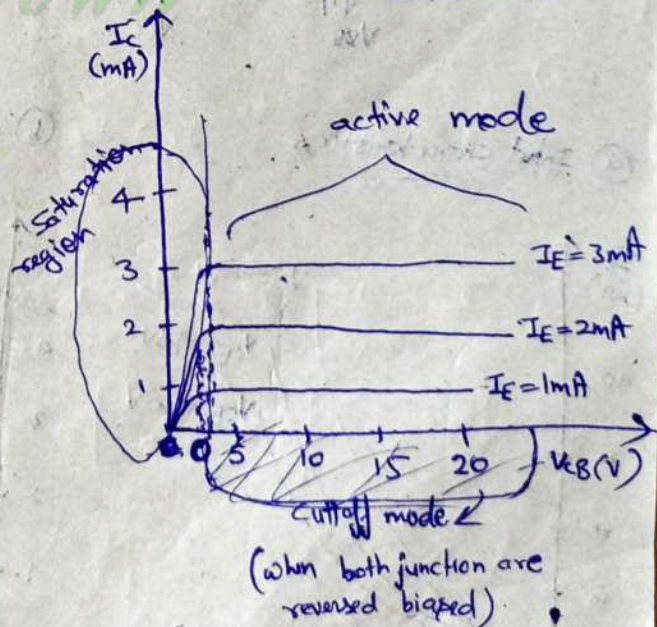 Ic
(mA)
active mode
Saturation
region
4
3
2
1
IE = 3mA
IE = 2mA
IE = 1mA
0 5 10 15 20 VCB (V)
Cuttoff mode
(when both junction are
reversed biased).